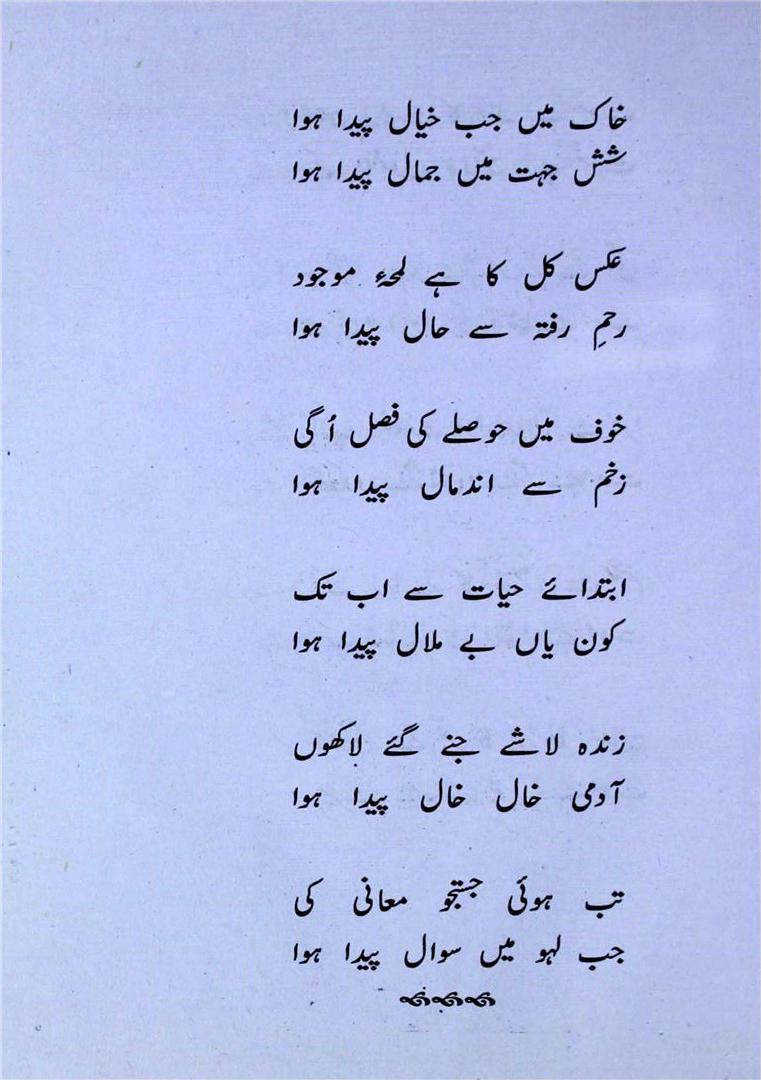 خاک میں جب خیال پیدا ہوا
شش جہت میں جمال پیدا ہوا
عکس کل کا ہے لمحۂ موجود
رحمِ رفتہ سے حال پیدا ہوا
خوف میں حوصلے کی فصل اُگی
زخم سے اندمال پیدا ہوا
ابتدائے حیات سے اب تک
کون یاں بے ملال پیدا ہوا
زندہ لاشے جنے گئے لاکھوں
آدمی خال خال پیدا ہوا
تب ہوئی جستجو معانی کی
جب لہو میں سوال پیدا ہوا